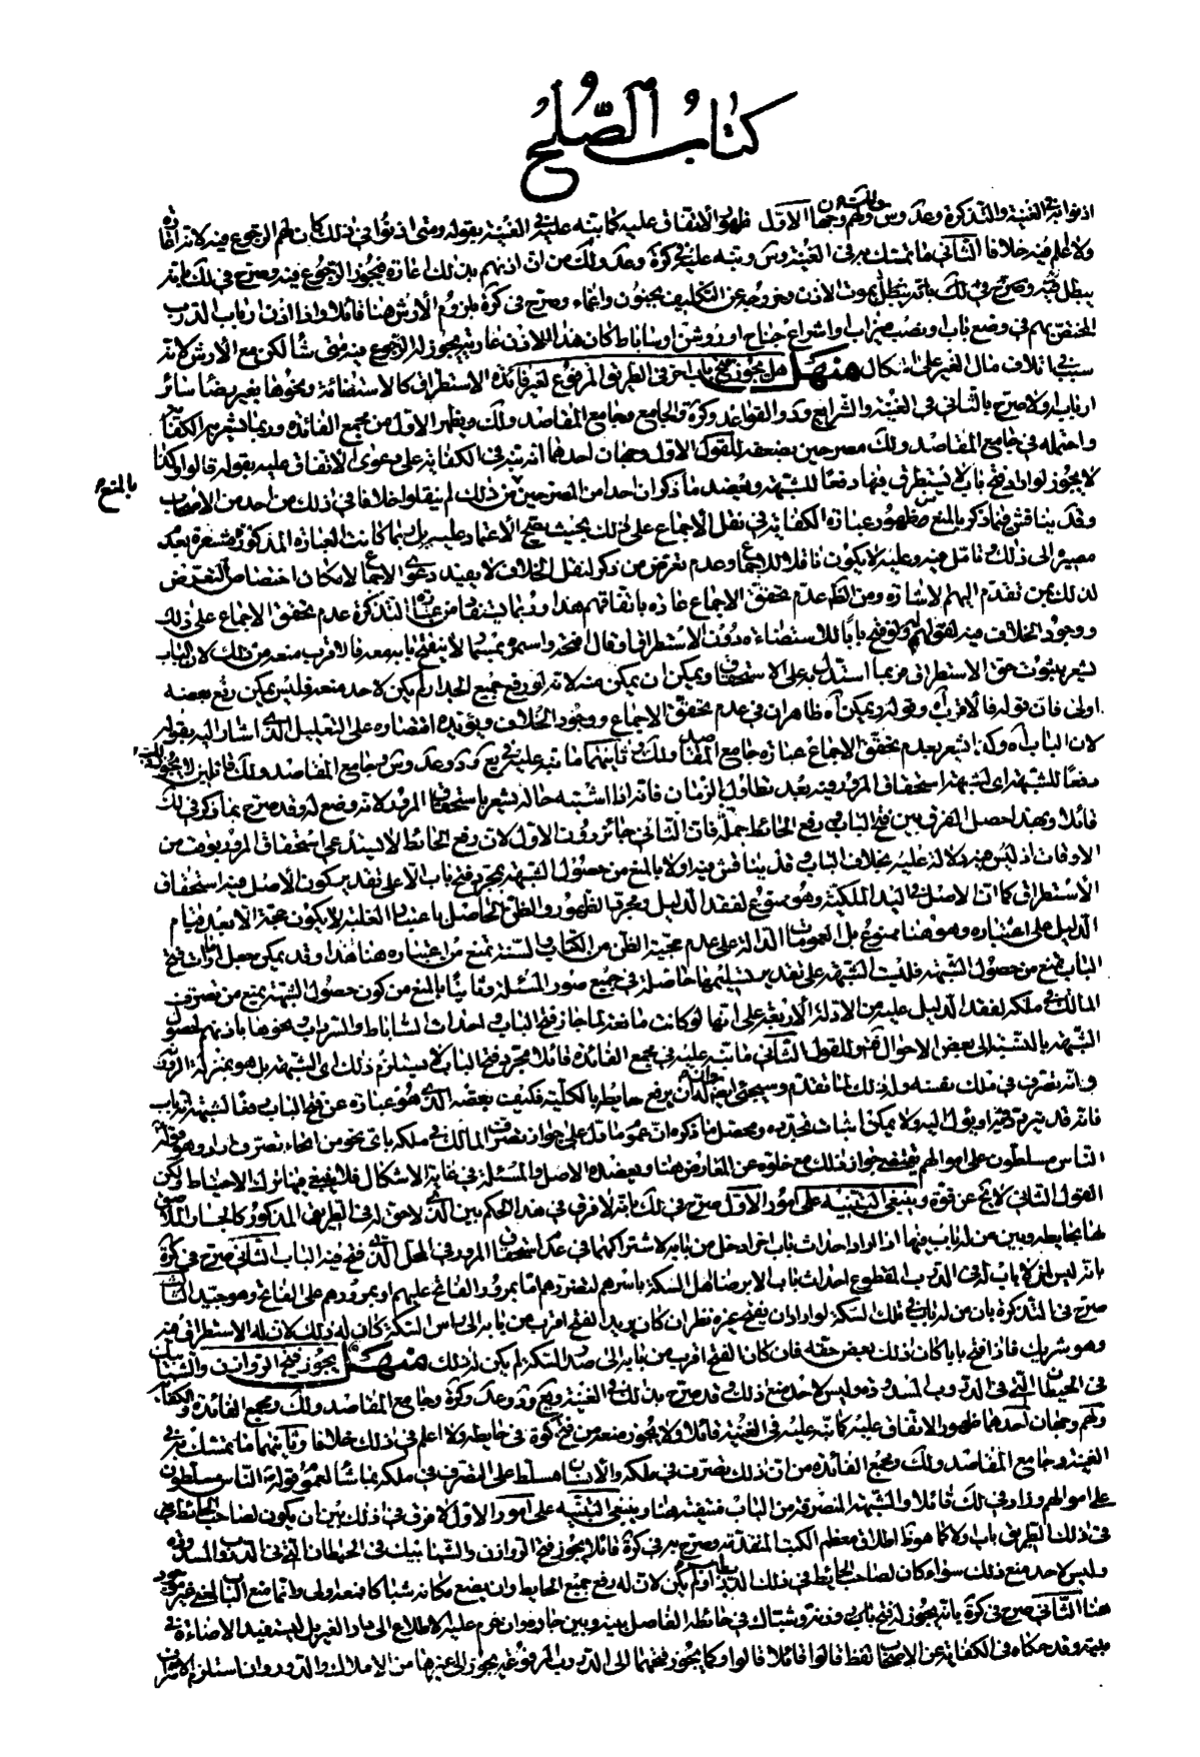 كتاب الصلح
اذنوا به في الغنية والتذكرة وعد وس ولهم وجهان الاول ظهور الاتفاق عليه كما نبه عليه في الغنية بقوله ومتى اذنوا في ذلك كان لهم الرجوع فيه لانه
ولا اعلم فيه خلافا الثاني ما تمسك به في الغنية وس ونبه عليه في كرة وعد ولك من ان اذنهم بذلك اعارة فيجوز الرجوع فيه وصرح في لك بانه
يبطل وصرح في لك بانه يبطل بموت الاذن وخروجه عن التكليف بجنون واغماء وصرح في كرة بلزوم الارش هنا قائلا واذا اذن ارباب الدرب
المختص بهم في وضع باب او نصب ميزاب واشراع جناح او روشن او ساباط كان هذا الاذن عارية يجوز له الرجوع فيه متى شاء لكن مع الارش لانه
سبب في اتلاف مال الغير على اشكال منهل هل يجوز فتح باب اخر في الطريق المرفوع لغير فائدة الاستطراق كالاستضائة ونحوها بغير رضا سائر
اربابه او لا صرح بالثاني في الغنية والشرايع وعد والقواعد وكرة والجامع وجامع المقاصد ولك ويظهر الاول من مجمع الفائدة وربما
واحتمله في جامع المقاصد ولك مصرحين بضعفه للقول الاول وجهان احدهما انه نبه في الكفاية على دعوى الاتفاق عليه بقوله قالوا وكذا
لا يجوز لو اراد فتح باب لا يستطرق فيها دفعا للشبهة ويعضد ما ذكر ان احدا من المصرحين بذلك لم ينقلوا خلافا في ذلك من احد من الاصحاب
بالمنع
وقد يناقش فيما ذكر بالمنع من ظهور عبارة الكفاية في نقل الاجماع على ذلك بحيث يصح الاعتماد عليه بل ربما كانت العبارة المذكورة مشعرة بعدم
مصيره الى ذلك فتامل فيه وعليه لا يكون ناقلا للاجماع وعدم تعرض من ذكر لنقل الخلاف لا يفيد دعوى الاجماع لامكان اختصاص التعرض
لذلك بمن تقدم اليهم الاشارة ومن الظاهر عدم تحقق الاجماع عادة باتفاقهم هذا وربما يستفاد من عبارة التذكرة عدم تحقق الاجماع على ذلك
ووجود الخلاف فيه لقوله ولو فتح بابا للاستضاءة دون الاستطراق او قال افتحه واسمره بمسمار لا ينفتح بابه معه فالاقرب منعه من ذلك لان الباب
يشعر بثبوت حق الاستطراق فربما استدل به على الاستحقاق ويمكن ان يمكن منه لانه لو رفع جميع الجدار لم يكن لاحد منعه فلئن يمكن رفع بعضه
اولى فان قوله فالاقرب وقوله ويمكن اه ظاهران في عدم تحقق الاجماع ووجود الخلاف ويؤيده اقتصاره على التعليل الذي اشار اليه بقوله
لان الباب اه وكذا يشعر بعدم تحقق الاجماع عبارة جامع المقاصد ولك وثانيهما ما نبه عليه في يع وعد وس وجامع المقاصد ولك قائلين لا يجوز ذلك
دفعا للشبهة اي لشبهة استحقاق المرور فيه بعد تطاول الزمان فانه اذا اشتبه حاله يشعر باستحقاق المرور لانه وضع له وقد صرح بما ذكر في لك
قائلا وبهذا حصل الفرق بين فتح الباب ورفع الحائط جملة فان الثاني جائز دون الاول لان رفع الحائط لا يستدل على استحقاق المرور بوقت من
الاوقات اذ ليس فيه دلالة عليه بخلاف الباب وقد يناقش فيه اولا بالمنع من حصول الشبهة بمجرد فتح باب الا على تقدير كون الاصل فيه استحقاق
الاستطراق كما ان الاصل في اليد الملكية وهو ممنوع لفقد الدليل ومجرد الظهور والظن الحاصل باعتبار الغلبة لا يكون حجة الا بعد قيام
الدليل على اعتباره وهو هنا ممنوع بل العمومات الدالة على عدم حجية الظن من الكتاب والسنة تمنع من اعتباره هنا هذا وقد يمكن جعل امارات فتح
الباب تمنع من حصول الشبهة فليست الشبهة على تقدير تسليمها حاصلة في جميع صور المسئلة وثانيا بالمنع من كون حصول الشبهة يمنع من تصرف
المالك في ملكه لفقد الدليل عليه من الادلة الاربعة على انها لو كانت مانعة لما جاز فتح الباب واحداث الساباط والسرداب ونحوها باذنهم لحصول
الشبهة بالنسبة الى بعض الاحوال وللقول الثاني ما نبه عليه في مجمع الفائدة قائلا مجرد فتح الباب لا يستلزم ذلك اي الشبهة بل هو بمنزلة الروشن
وانه تصرف في ملك نفسه ولذلك لما تقدم وسيجئ ايضا له ان يرفع حايطه بالكلية فكيف بعضه الذي هو عبارة عن فتح الباب ودفع الشبهة
فانه قد يتردد فيه او يؤل اليه ولا يمكن اثبات تحديده ومحصل ما ذكره ان عموم ما دل على جواز تصرف المالك في ملكه باي نحو من انحاء التصرف اراد وهو قوله
الناس مسلطون على اموالهم يقتضي جواز ذلك مع خلوه عن المعارض هنا ويعضده الاصل والمسئلة في غاية الاشكال فلا ينبغي فيها ترك الاحتياط ولكن
القول الثاني لا يخ عن قوة وينبغي التنبيه على امور الاول صرح في لك بانه لا فرق في هذا الحكم بين الذي لاحق له في الطريق المذكور كالجار الملاصق
لها بحايطه وبين من له باب فيها اذا اراد احداث باب اخر ادخل من بابه لاشتراكهما في عدم استحقاق المرور في المحل الذي فتح فيه الباب الثاني صرح في كرة
بانه ليس لمن لا باب له في الدرب المقطوع احداث باب الا برضا اهل السكة باسرهم لتضررهم اما بمرور الفاتح عليهم او بمرورهم على الفاتح وهو جيد الثالث
صرح في التذكرة بان من له باب في تلك السكة لو اراد ان يفتح غيره نظر ان كان يريد الفتح اقرب من بابه الى راس السكة كان له ذلك لان له الاستطراق فيه
وهو شريك فاذا فتح بابا كان ذلك بعض حقه فان كان الفتح اقرب من بابه الى صدر السكة لم يكن له ذلك منهل يجوز فتح الروازن والشبابيك
في الحيطان التي في الدروب المسدودة وليس لاحد منع ذلك وقد صرح بذلك في الغنية ويع وعد وكرة وجامع المقاصد ولك ومجمع الفائدة والكفاية
ولهم وجهان احدهما ظهور الاتفاق عليه كما نبه عليه في الغنية قائلا ولا يجوز منعه من فتح كوة في حايطه ولا اعلم في ذلك خلافا وثانيهما ما تمسك به في
الغنية وجامع المقاصد ولك ومجمع الفائدة من ان ذلك تصرف في ملكه والانسان مسلط على التصرف في ملكه بما شاء لعموم قوله الناس مسلطون
على اموالهم وزاد في لك قائلا والشبهة المتصرفة من الباب منتفية هنا وينبغي التنبيه على امور الاول لا فرق في ذلك بين ان يكون لصاحب الحائط
في ذلك الطريق باب ولا كما هو ظ اطلاق معظم الكتب المتقدمة وصرح به في كرة قائلا يجوز فتح الروازن والشبابيك في الحيطان التي في الدروب المسدودة
وليس لاحد منع ذلك سواء كان لصاحب الحايط في ذلك الدرب باب او لم يكن لان له رفع جميع الحايط وان يضع مكانه شباكا فبعضه اولى وانما منع الباب
هنا الثاني صرح في كرة بانه يجوز له فتح باب وروزنة وشباك في حائطه الفاصل بينه وبين جاره وان حرم عليه الاطلاع الى دار الغير بل ليستفيد الاضاءة في
بيته وقد حكاه في الكفاية عن الاصحاب فقط فقالوا قائلا قالوا وكما يجوز فتحها الى الدروب المرفوعة يجوز الى غيرها من الاملاك والدور وان استلزم الاشراف